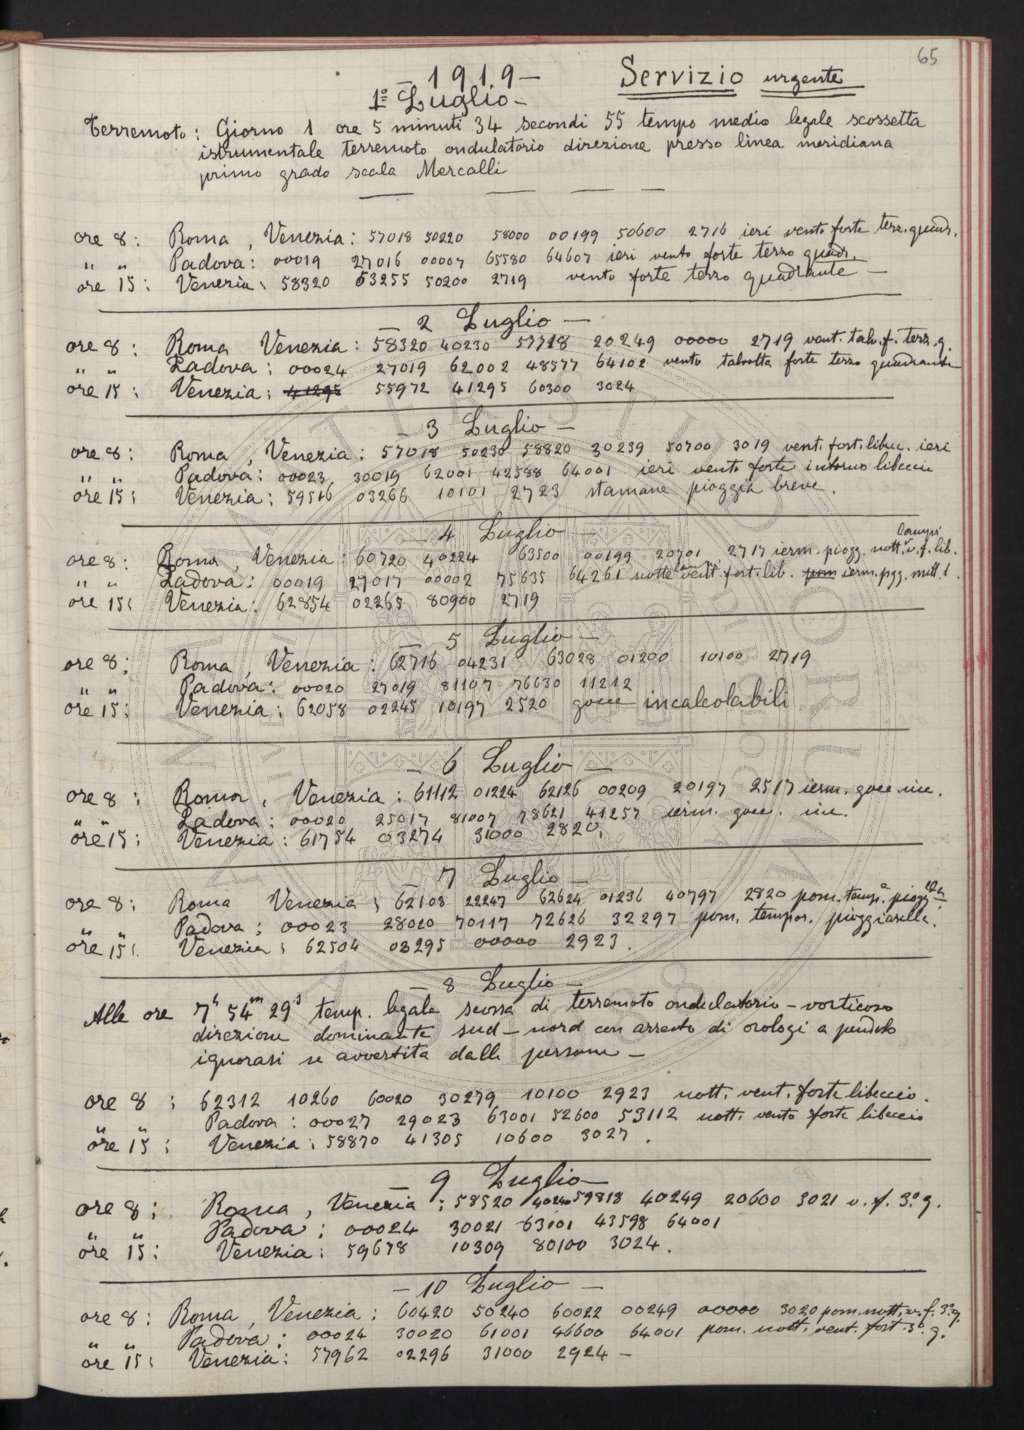 65
— 1919 — Servizio urgente
1º Luglio —
Terremoto: Giorno 1 ore 5 minuti 34 secondi 55 tempo medio legale scossetta
istrumentale terremoto ondulatorio direzione presso linea meridiana
primo grado scala Mercalli
ore 8: Roma, Venezia: 57018 50220 58000 00199 50600 2716 ieri vento forte terz. quadr.
" " Padova: 00019 27016 00007 65580 64607 ieri vento forte terzo quadr.
ore 15: Venezia: 58320 03255 50200 2719 vento forte terzo quadrante —
— 2 Luglio —
ore 8: Roma Venezia: 58320 40230 57718 20249 00000 2719 vent. talv. f. terz. q.
" " Padova: 00024 27019 62002 48577 64102 vento talvolta forte terzo quadrante
ore 15: Venezia: 41295 55972 41295 60300 3024
— 3 Luglio —
ore 8: Roma, Venezia: 57018 50230 58820 30239 50700 3019 vent. fort. libec. ieri
" " Padova: 00023 30019 62001 42588 64001 ieri vento forte intorno libeccio
ore 15: Venezia: 59516 03266 10101 2723 stamane pioggia breve.
— 4 Luglio —
ore 8: Roma Venezia: 60720 40224 63500 00199 20701 2717 ierm. piogg. nott. v. f. lib.
" " Padova: 00019 27017 00002 75635 64261 notte vent. fort. lib. pom ierm. pgg.
ore 15: Venezia: 62854 02265 80900 2719
— 5 Luglio —
ore 8: Roma, Venezia: 62716 04231 63028 01200 10100 2719
" " Padova: 00020 27019 81107 76630 11212
ore 15: Venezia: 62058 02245 10197 2520 gocce incalcolabili
— 6 Luglio —
ore 8: Roma, Venezia: 61112 01224 62126 00209 20197 2517 ierm. gocc. inc.
" " Padova: 00020 25017 81007 78621 41257 ierm. gocc. inc.
ore 15: Venezia: 61754 03274 31000 2820.
— 7 Luglio —
ore 8: Roma Venezia: 62103 22247 62624 01236 40797 2820 pom. temp.
" " Padova: 00023 28020 70117 72626 32297 pom. tempor. pioggiarella.
ore 15: Venezia: 62504 03295 00000 2923.
— 8 Luglio —
Alle ore 7h 54m 29s temp. legale scossa di terremoto ondulatorio - vorticoso
direzione dominante sud - nord con arresto di orologi a pendolo
ignorasi se avvertita dalle persone —
ore 8: 62312 10260 60020 30279 10100 2923 nott. vent. forte libeccio.
" " Padova: 00027 29023 63001 52600 53112 nott. vento forte libeccio
ore 15: Venezia: 58870 41305 10600 3027.
— 9 Luglio —
ore 8: Roma, Venezia: 58520 40240 59818 40249 20600 3021 v. f. 3º q.
" " Padova: 00024 30021 63101 43598 64001
ore 15: Venezia: 59678 10309 80100 3024.
— 10 Luglio —
ore 8: Roma, Venezia: 60420 50240 60022 00249 00000 3020 pom. nott. v. f. 3º q.
" " Padova: 00024 30020 61001 46600 64001 pom. nott. vent. fort 3º q.
ore 15: Venezia: 57962 02296 31000 2924 —